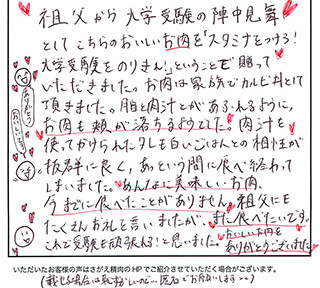 祖父から大学受験の陣中見舞
としてこちらのおいしいお肉を「スタミナをつけろ!
大学受験をのりきれ!」ということで贈って
いただきました。お肉は家族でカルビ丼として
頂きました。脂と肉汁とがあふれるように、
お肉も頬が落ちるようでした。肉汁を
使ってかけられたタレも白いごはんとの相性が
抜群に良く、あっという間に食べ終わって
しまいました。あんなに美味しいお肉、
今までに食べたことがありません。祖父にも
たくさんお礼を言いましたが、また食べたいです。
これで受験も頑張れる!と思いました。
おいしいお肉を
ありがとうございました
ありがとう
おいしい
いただいたお客様の声はさがえ精肉のHPでご紹介させていただく場合がございます。
(載せる場合は恥ずかしいので…匿名でお願いします…)